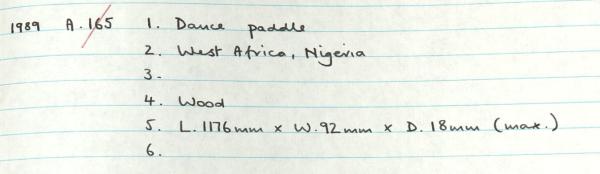 1989 A.165 1. Dance paddle
2. West Africa, Nigeria
3.-
4. Wood
5. L.1176mm x W.92mm x D.18mm (max.)
6.